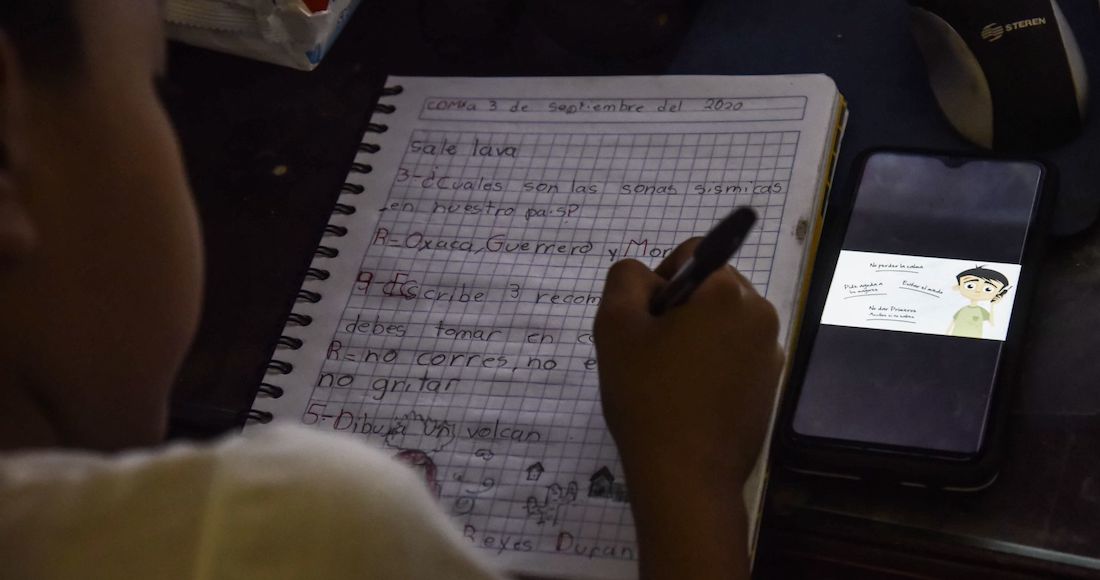 COMPa 3 de septiembre del 2020
sale lava
3-¿Cuales son las sonas sismicas
en nuestro pais?
R= Oxaca, Guerrero y Mor
9 ¿Escribe 3 recom
debes tomar en c
R= no corres, no e
no gritar
5-Dibuja un volcan
Reyes Duran
STEREN
No perder la calma
Pida ayuda a
Evitar el miedo
No dar Primeros